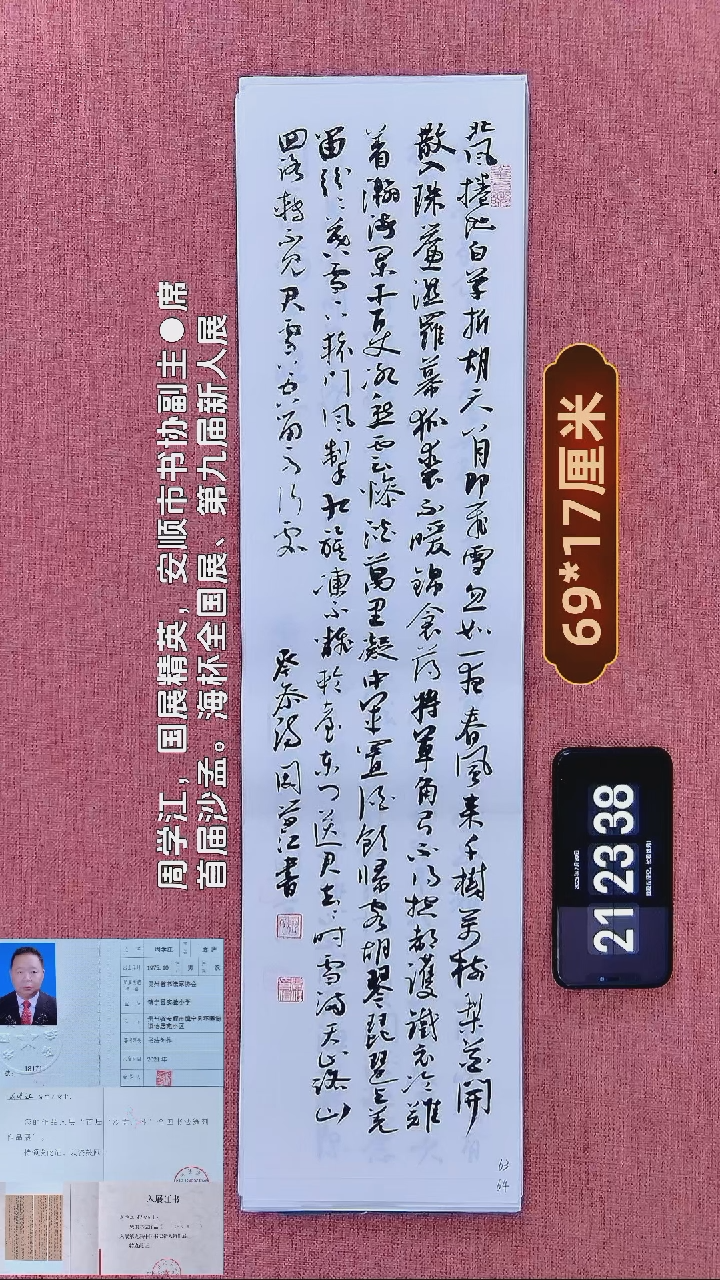 北风捲地白草折胡天八月即飞雪忽如一夜春风来千樹萬樹梨花開
散入珠簾濕羅幕狐裘不暖錦衾薄將軍角弓不得控都護鐵衣冷難
着瀚海闌干百丈冰愁雲慘淡萬里凝中軍置酒飲歸客胡琴琵琶与羌
笛纷〻暮雪下轅門风掣红旗凍不翻輪臺东门送君去〻时雪满天山路山
回路轉不见君雪上空留马行处
癸卯 周学江書
63
64
周学江，国展精英，安顺市书协副主●席
首届沙孟。海杯全国展、第九届新人展
69*17厘米
21 23 38
入展证书